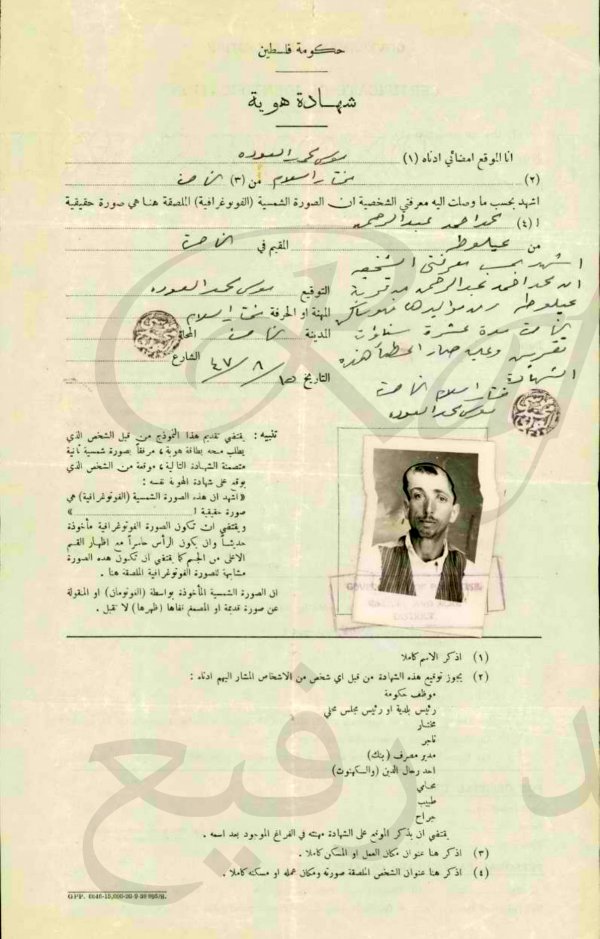 حكومة فلسطين
شهادة هوية
انا الموقع امضائي ادناه (١) موسى محمد العوده
(٢) مختار اسلام من (٣) الناصرة
اشهد بحسب ما وصلت اليه معرفتي الشخصية ان الصورة الشمسية (الفوتوغرافية) الملصقة هنا هي صورة حقيقية
ا (٤) محمد احمد عبد الرحمن
من عيلوط المقيم في الناصرة
اشهد بحسب معرفتي الشخصية
ان محمد احمد عبد الرحمن من قرية
عيلوط ومن مواليدها وهو ساكن
الناصرة مدة عشرة سنوات
تقريبا وعليه صار اعطاءه هذه
الشهادة
مختار اسلام الناصرة
موسى محمد العوده
التوقيع موسى محمد العوده
المهنة او الحرفة مختار اسلام
المدينة الناصرة
الشارع
التاريخ ١٥/٨/٤٧
تنبيه : يقتضي تقديم هذا النموذج من قبل الشخص الذي
يطلب منحه بطاقة هوية، مرفقاً بصورة شمسية ثانية
متضمنة الشهادة التالية، موقعة من الشخص الذي
يوقع على شهادة الهوية نفسه :
« اشهد ان هذه الصورة الشمسية (الفوتوغرافية) هي
صورة حقيقية ا »
ويقتضي ان تكون الصورة الفوتوغرافية مأخوذة
حديثاً وان يكون الرأس حاسراً مع اظهار القسم
الاعلى من الجسم كما يقتضي ان تكون هذه الصورة
مشابهة للصورة الفوتوغرافية الملصقة هنا .
ان الصورة الشمسية المأخوذة بواسطة (الفوتومات) او المنقولة
عن صورة قديمة او المصمغ قفاها (ظهرها) لا تقبل .
DISTRICT
(١) اذكر الاسم كاملا
(٢) يجوز توقيع هذه الشهادة من قبل اي شخص من الاشخاص المشار اليهم ادناه :
موظف حكومة
رئيس بلدية او رئيس مجلس محلي
مختار
تاجر
مدير مصرف (بنك)
احد رجال الدين (والسكهنوت)
محامي
طبيب
جراح
يقتضي ان يذكر الموقع على الشهادة مهنته في الفراغ الموجود بعد اسمه .
(٣) اذكر هنا عنوان مكان العمل او المسكن كاملا .
(٤) اذكر هنا عنوان الشخص الملصقة صورته ومكان عمله او مسكنه كاملا .
رفيع